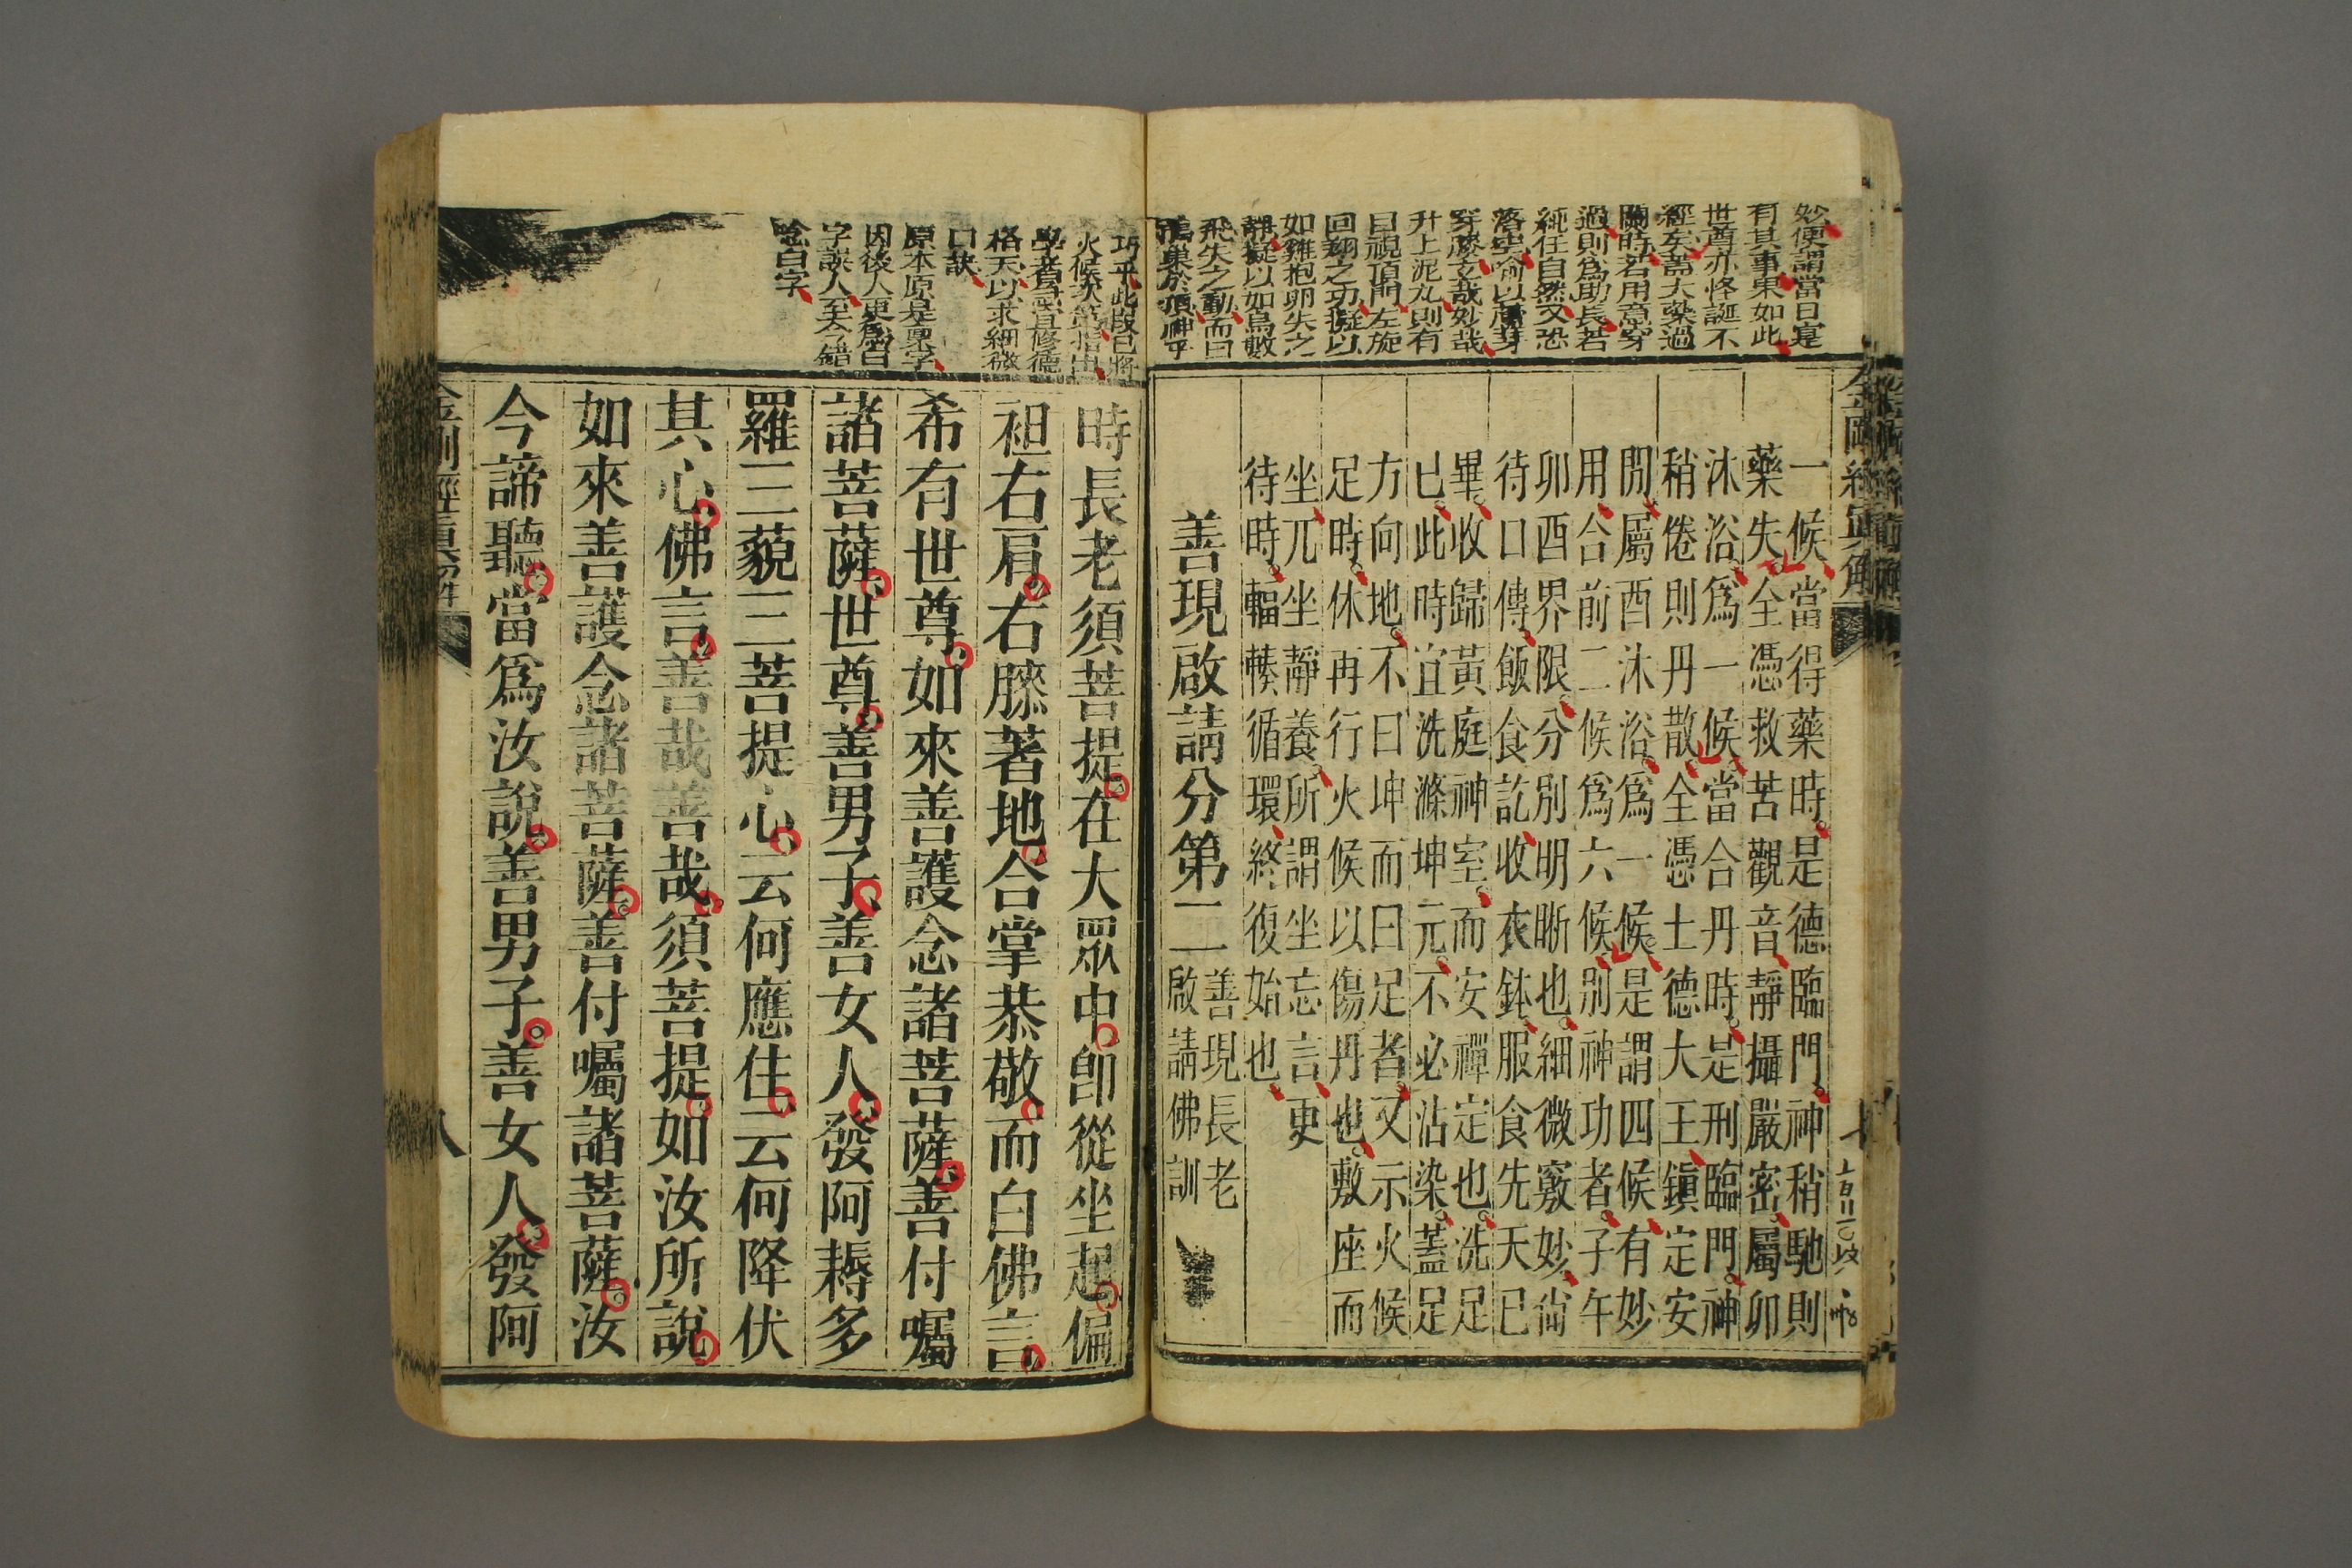 妙便謂當日寔
有其事果如此
世尊亦怪誕不
經矣蓋大藥過
關時若用意穿
過則爲助長若
純任自然又恐
落空喻以蘆芽
穿膝玄哉妙哉
升上泥丸則有
目視頂門左旋
回翔之功擬以
如雞抱卵失之
靜擬以如鳥數
飛失之動而曰
鵲巢於頂神乎
一候當得藥時是德臨門神稍馳則
藥失全憑救苦觀音靜攝嚴密屬卯
沐浴爲一候當合丹時是刑臨門神
稍倦則丹散全憑土德大王鎮定安
閒屬酉沐浴爲一候是謂四候有妙
用合前二候爲六候別神功者子午
卯酉界限分別明晰也細微竅妙尙
待口傳飯食訖收衣鉢服食先天已
畢收歸黃庭神室而安禪定也洗足
已此時宜洗滌坤元不必沾染蓋足
方向地不曰坤而曰足者又示火候
足時休再行火候以傷丹也敷座而
坐兀坐靜養所謂坐忘言更
待時輻輳循環終復始也
善現啟請分第二
善現長老
啟請佛訓
金剛經眞解
七
巧乎此段已將
火候次第指出
學者急宜修德
格天以求細微
口訣
原本原是裏字
因後人更爲白
字誤人至今錯
念白字
時長老須菩提在大眾中卽從坐起偏
袒右肩右膝著地合掌恭敬而白佛言
希有世尊如來善護念諸菩薩善付囑
諸菩薩世尊善男子善女人發阿耨多
羅三藐三菩提心云何應住云何降伏
其心佛言善哉善哉須菩提如汝所說
如來善護念諸菩薩善付囑諸菩薩汝
今諦聽當爲汝說善男子善女人發阿
金剛經眞解
八